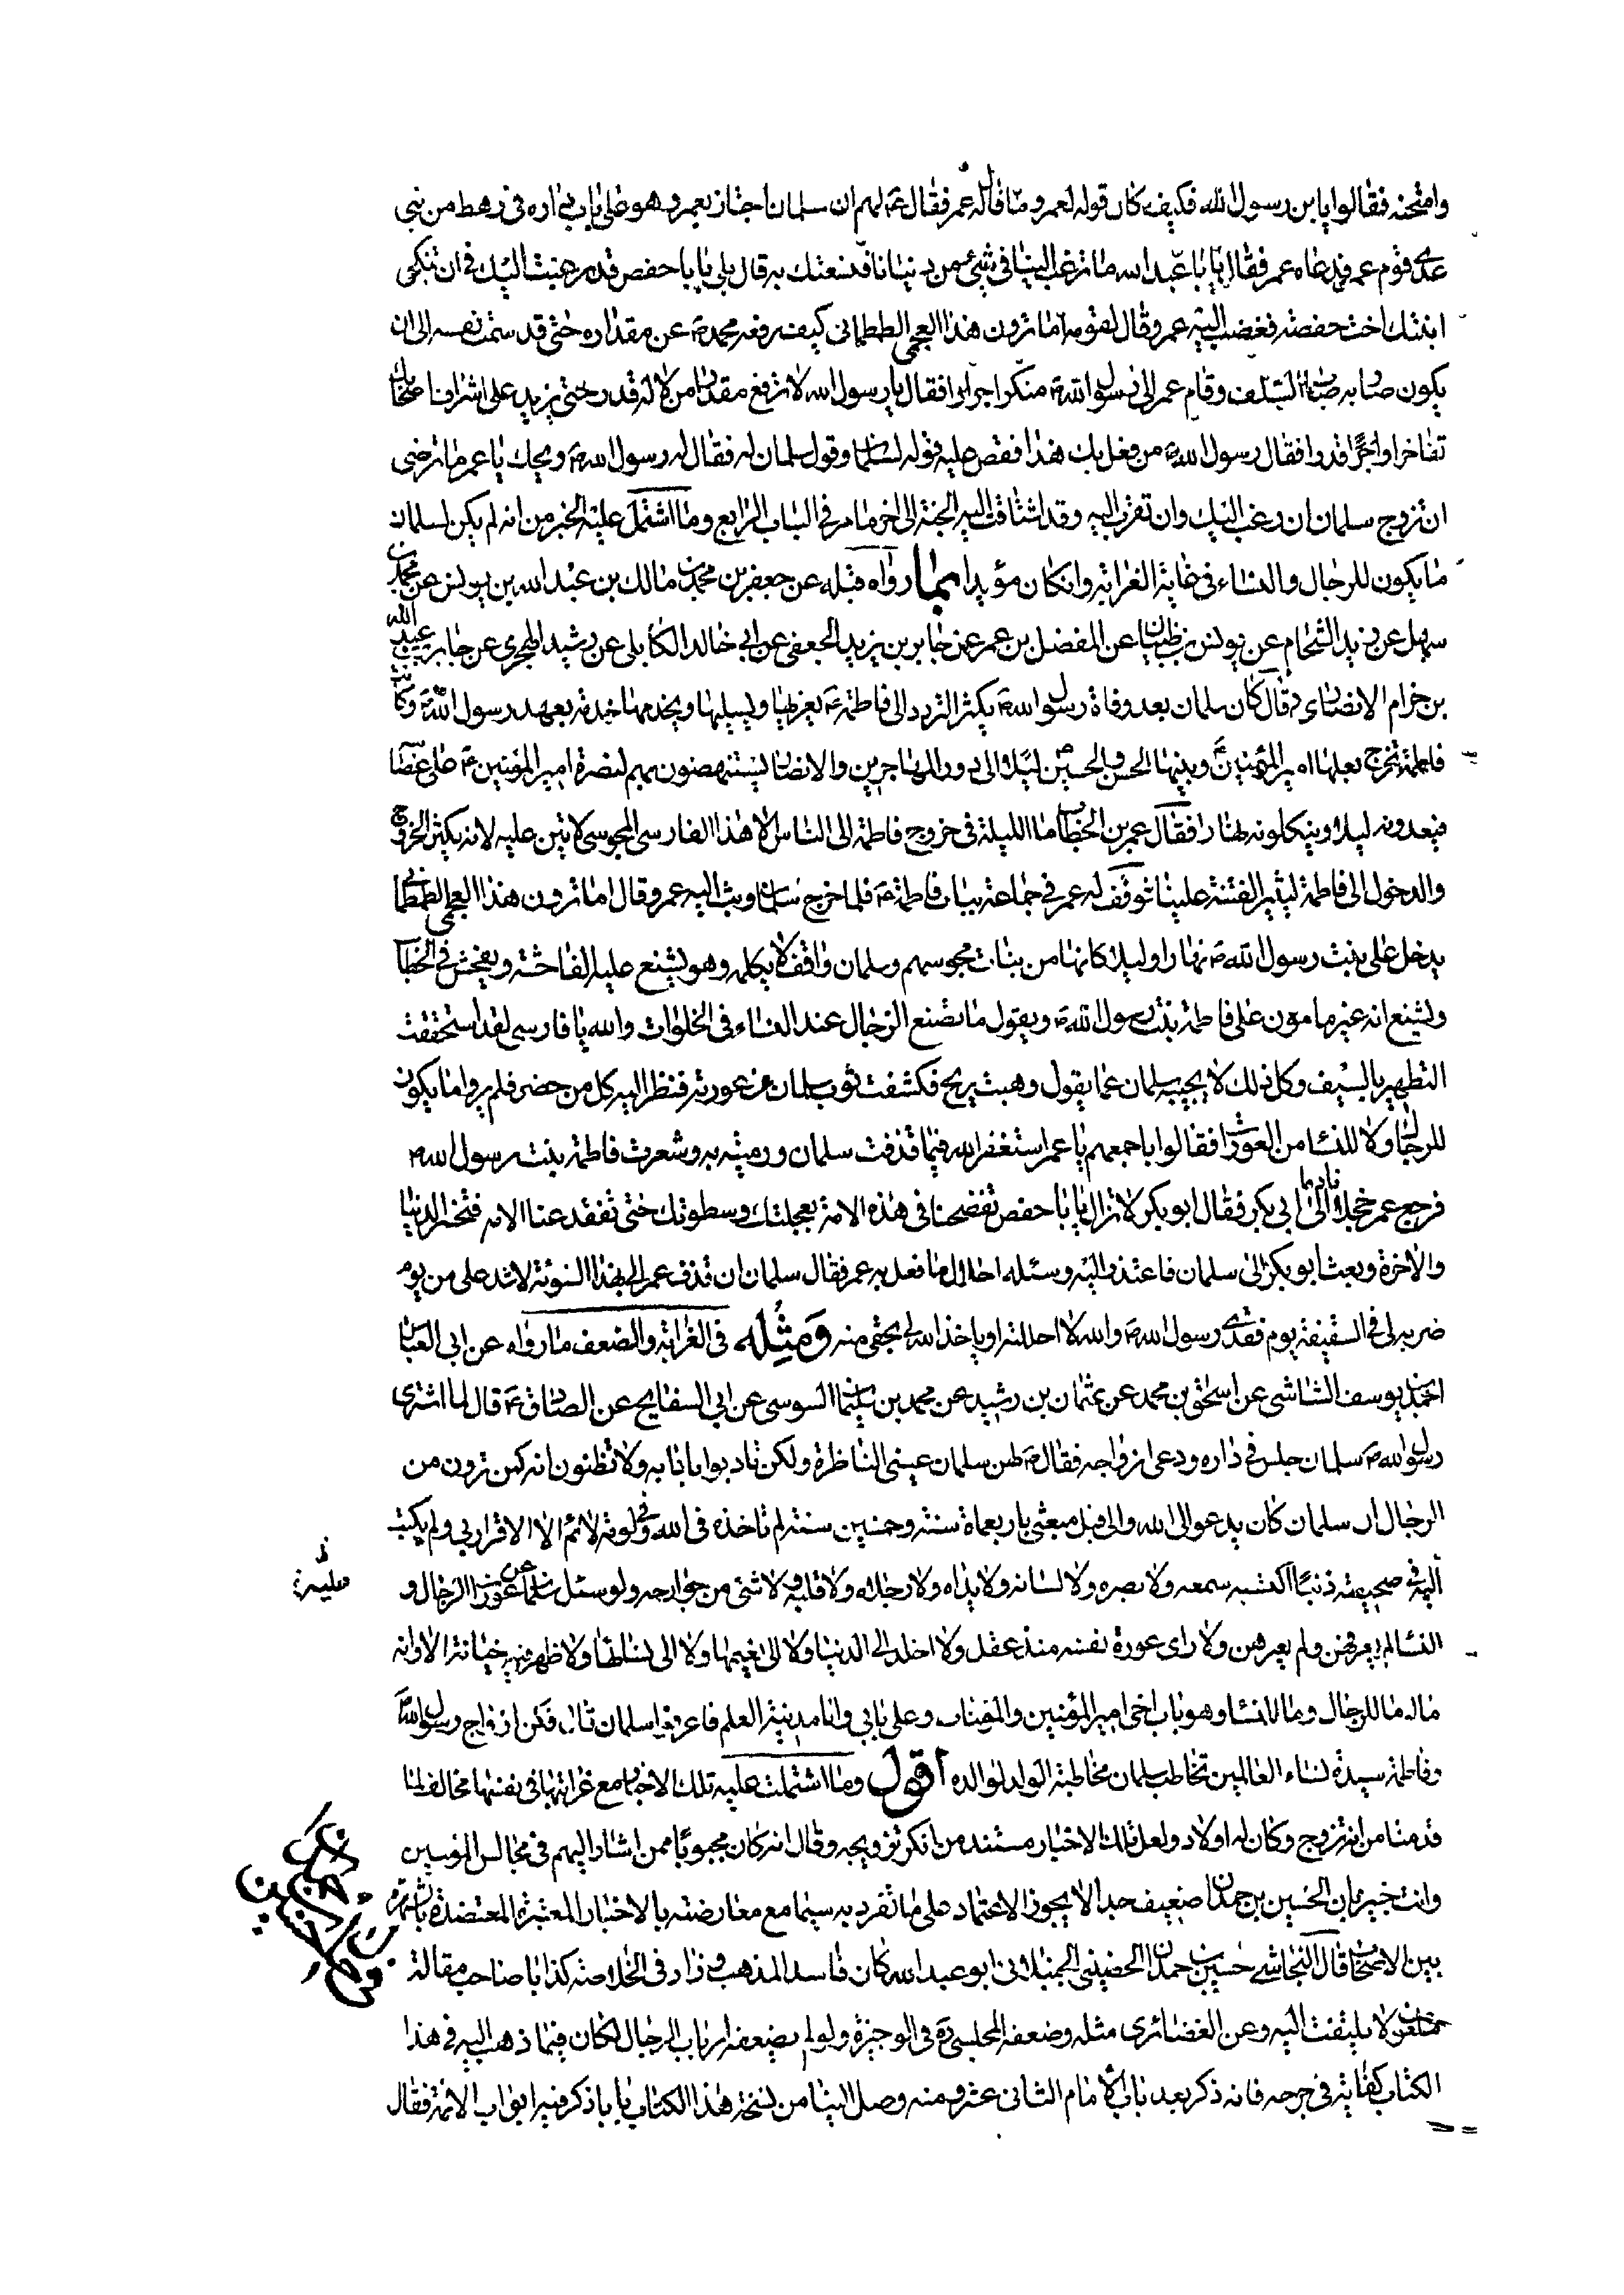 وامتحنه فقالوا يا بن رسول الله فكيف كان قوله لعمر وما قاله عمر فقال ع لهم ان سلمان اجتاز بعمر وهو على باب داره في رهط من بني
عدى قوم عمر فدعاه عمر فقال يا با عبد الله ما ترغب الينا في شيء من دنيانا فنسعتك به قال بلى يا با حفص قد رغبت اليك في ان تنكحني
ابنتك اخت حفصة فغضب اليه عمر وقال لقومه اما ترون هذا العجمي الطمطماني كيف رفعه محمد ص عن مقداره حتى قد سمت نفسه الى ان
يكون وقام عمر الى رسول الله ص منكرا فقال يا رسول الله لا ترفع مقدار من لا له قدر حتى يزيد على اشرافنا
تفاخرا فقال رسول الله ص من فعل بك هذا فقص عليه قوله لسلمان وقول سلمان له فقال له رسول الله ص ويحك يا عمر ما ترضى
ان تزوج سلمان ان رغب اليك وان تقرب اليه وقد اشتاقت اليه الجنة الى اخر ما مر في الباب الرابع وما اشتمل عليه الخبر من انه لم يكن لسلمان
ما يكون للرجال والنساء في غاية الغرابة وان كان مؤيدا بما رواه قبله عن جعفر بن محمد بن مالك بن عبد الله بن يونس عن محمد بن
سهل عن زيد الشحام عن يونس بن ظبيان عن المفضل بن عمر عن جابر بن يزيد الجعفي عن ابي خالد الكابلي عن رشيد الهجري عن جابر بن عبد الله
بن حزام الانصاري قال كان سلمان بعد وفاة رسول الله ص يكثر التردد الى فاطمة ع يعزيها ويسليها ويخدمها خدمته بعهد رسول الله ص وكانت
فاطمة تخرج بعلها امير المؤمنين ع وبنيها الحسن والحسين ليلا الى دور المهاجرين والانصار يستنهضون بهم لنصرة امير المؤمنين ع على
فيعدونه ليلا وينكلونه نهارا فقال عمر بن الخطاب ما الليلة في خروج فاطمة الى الناس الا هذا الفارسي المجوسي عليه لانه يكثر الخروج
والدخول الى فاطمة ليثير الفتنة علينا توقف له عمر في جماعة بباب فاطمة ع فلما خرج سلمان وثب اليه عمر وقال اما ترون هذا العجمي الطمطماني
يدخل على بنت رسول الله ص نهارا وليلا كانها من بنات مجوسهم وسلمان واقف لا يكلمه وهو يشنع عليه الفاحشة ويفحش في الخطاب
ويشنع انه غير مامون على فاطمة بنت رسول الله ص ويقول ما تصنع الرجال عند النساء في الخلوات والله يا فارسي لقد استحققت
التطهير بالسيف وكل ذلك لا يجيبه سلمان عما يقول وهبت ريح فكشفت ثوب سلمان عن عورته فنظر اليه كل من حضر فلم يروا ما يكون
للرجال ولا للنساء من العورة فقالوا باجمعهم يا عمر استغفر الله فيما قذفت سلمان ورميته به وشعرت فاطمة بنت رسول الله ص
فرجع عمر خجلا نادما الى ابي بكر فقال ابو بكر لا تزال يا با حفص تفضحنا في هذه الامة بعجلتك وسطوتك حتى تفقد عنا الامة فتخسر الدنيا
والاخرة وبعث ابو بكر الى سلمان فاعتذر اليه وسئله احلال ما فعل به عمر فقال سلمان ان قذف عمر لي بهذا السوئة لاشد على من يوم
ضربه لي في السقيفة يوم فقدى رسول الله ص والله لا احللته او ياخذ الله لي بحقي منه ومثله في الغرابة والضعف ما رواه عن ابي العباس
احمد بن يوسف الشاشي عن اسحق بن محمد عن عثمان بن رشيد عن محمد بن سليمان السوسي عن ابي السفايح عن الصادق ع قال لما اشترى
رسول الله ص سلمان جلس في داره ودعى ازواجه فقال ص لهن سلمان عيني الناظرة ولكن تادبوا بادابه ولا تظنون انه كمن ترون من
الرجال ان سلمان كان يدعو الى الله والى قبل مبعثي باربعماة سنة وخمسين سنة لم تاخذه في الله وفي لومة لائم الا الاقرار بي ولم يكتب
اليه في صحيفته ذنبا اكتسبه سمعه ولا بصره ولا لسانه ولا يداه ولا رجلاه ولا قلبه ولا شئ من جوارحه ولو سئل سلمان عن عورة الرجال و
عليه خ
النساء لم يعرفهن ولا راى عورة نفسه منذ عقل ولا اخلد الى الدنيا ولا الى نعيمها ولا الى لسانها ولا ظهر منه خيانة الا وانه
ماله ما للرجال وما للنساء وهو باب اخي امير المؤمنين والمؤمنات وعلى بابي وانا مدينة العلم فاعرفوا سلمان قال فكن ازواج رسول الله ص
وفاطمة سيدة نساء العالمين تخاطب سلمان مخاطبة الولد لوالده اقول وما اشتملت عليه تلك الاخبار مع غرابتها في نفسها مخالف لما
قدمنا من انه تزوج وكان له اولاد ولعل تلك الاخبار مستند من انكر تزويجه وقال انه كان مجبوبا ممن اشار اليهم في مجالس المؤمنين
وانت خبير بان الحسين بن حمدان ضعيف جدا لا يجوز الاعتماد على ما تفرد به سيما مع معارضته بالاخبار المعتبرة المعتضدة باشتهاره
بين الاصحاب قال النجاشي حسين بن حمدان الحضيني الجنبلاني ابو عبد الله كان فاسد المذهب وزاد في الخلاصة كذابا صاحب مقالة
ملعون لا يلتفت اليه وعن الغضائري مثله وضعفه المجلسي ره في الوجيزة ولو لم يضعفه ارباب الرجال لكان فيما ذهب اليه في هذا
الكتاب كفاية في جرحه فانه ذكر بعد باب الامام الثاني عشر ومنه وصل الينا من نسخة هذا الكتاب بابا ذكر فيه ابواب الائمة فقال